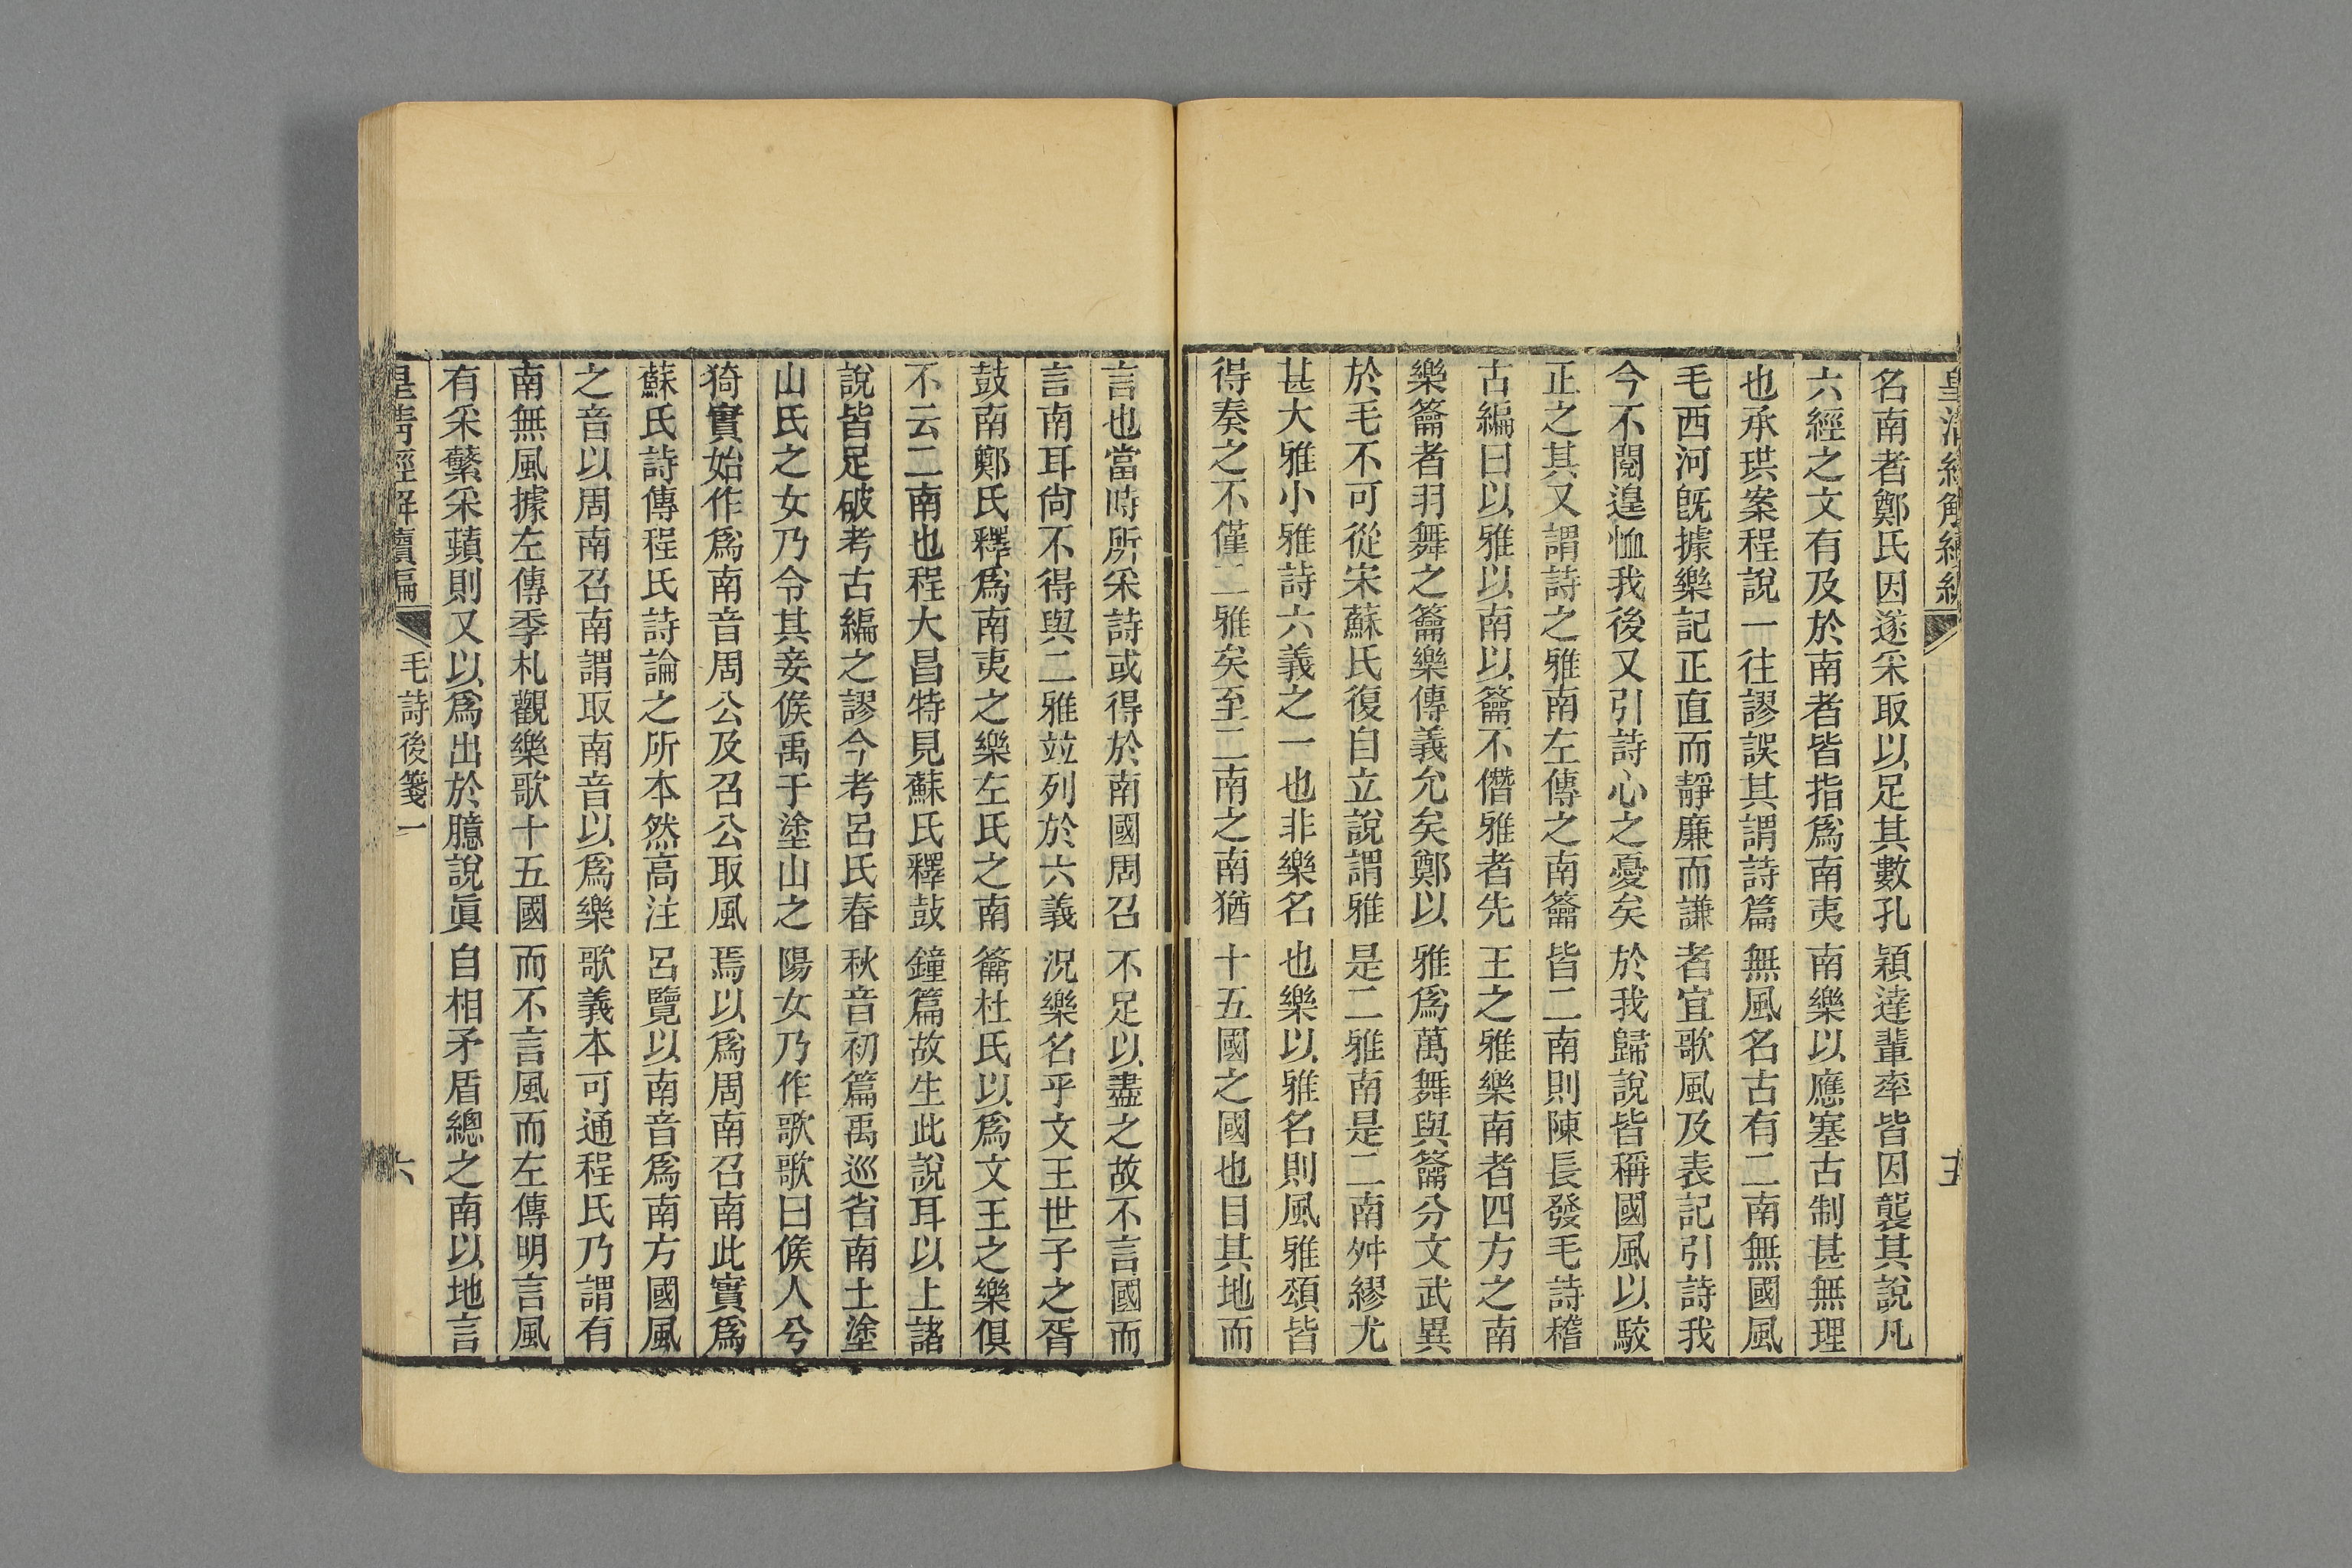 皇清經解續編
五
名南者鄭氏因遂采取以足其數孔穎達輩率皆因襲其說凡
六經之文有及於南者皆指爲南夷南樂以應塞古制甚無理
也承珙案程說一往謬誤其謂詩篇無風名古有二南無國風
毛西河旣據樂記正直而靜廉而謙者宜歌風及表記引詩我
今不閱遑恤我後又引詩心之憂矣於我歸說皆稱國風以駮
正之其又謂詩之雅南左傳之南籥皆二南則陳長發毛詩稽
古編曰以雅以南以籥不僭雅者先王之雅樂南者四方之南
樂籥者羽舞之籥樂傳義允矣鄭以雅爲萬舞與籥分文武異
於毛不可從宋蘇氏復自立說謂雅是二雅南是二南舛繆尤
甚大雅小雅詩六義之一也非樂名也樂以雅名則風雅頌皆
得奏之不僅二雅矣至二南之南猶十五國之國也目其地而
言也當時所采詩或得於南國周召不足以盡之故不言國而
言南耳尙不得與二雅竝列於六義況樂名乎文王世子之胥
鼓南鄭氏釋爲南夷之樂左氏之南籥杜氏以爲文王之樂俱
不云二南也程大昌特見蘇氏釋鼓鐘篇故生此說耳以上諸
說皆足破考古編之謬今考呂氏春秋音初篇禹巡省南土塗
山氏之女乃令其妾候禹于塗山之陽女乃作歌歌曰候人兮
猗實始作爲南音周公及召公取風焉以爲周南召南此實爲
蘇氏詩傳程氏詩論之所本然高注呂覽以南音爲南方國風
之音以周南召南謂取南音以爲樂歌義本可通程氏乃謂有
南無風據左傳季札觀樂歌十五國而不言風而左傳明言風
有采蘩采蘋則又以爲出於臆說眞自相矛盾總之南以地言
皇淸經解續編
毛詩後箋一
六